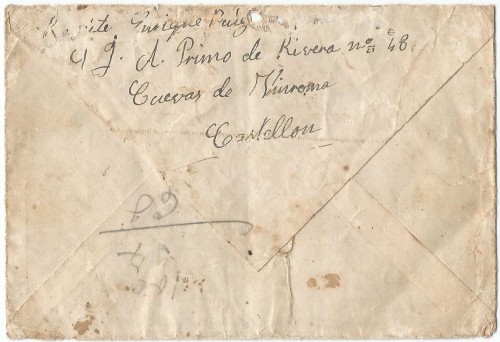 Remite Enrique Puig
C/ J. A. Primo de Rivera nº 48
Cuevas de Vinroma
Castellon